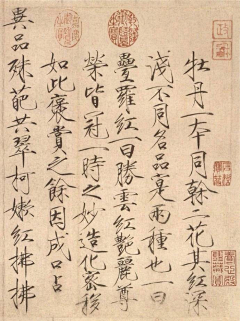 牡丹一本同幹二花其紅深
淺不同名品寔兩種也一曰
疊羅紅一曰勝雲紅艷麗尊
榮皆冠一時之妙造化密移
如此褒賞之餘因成口占
異品殊葩共翠柯嫩紅拂拂